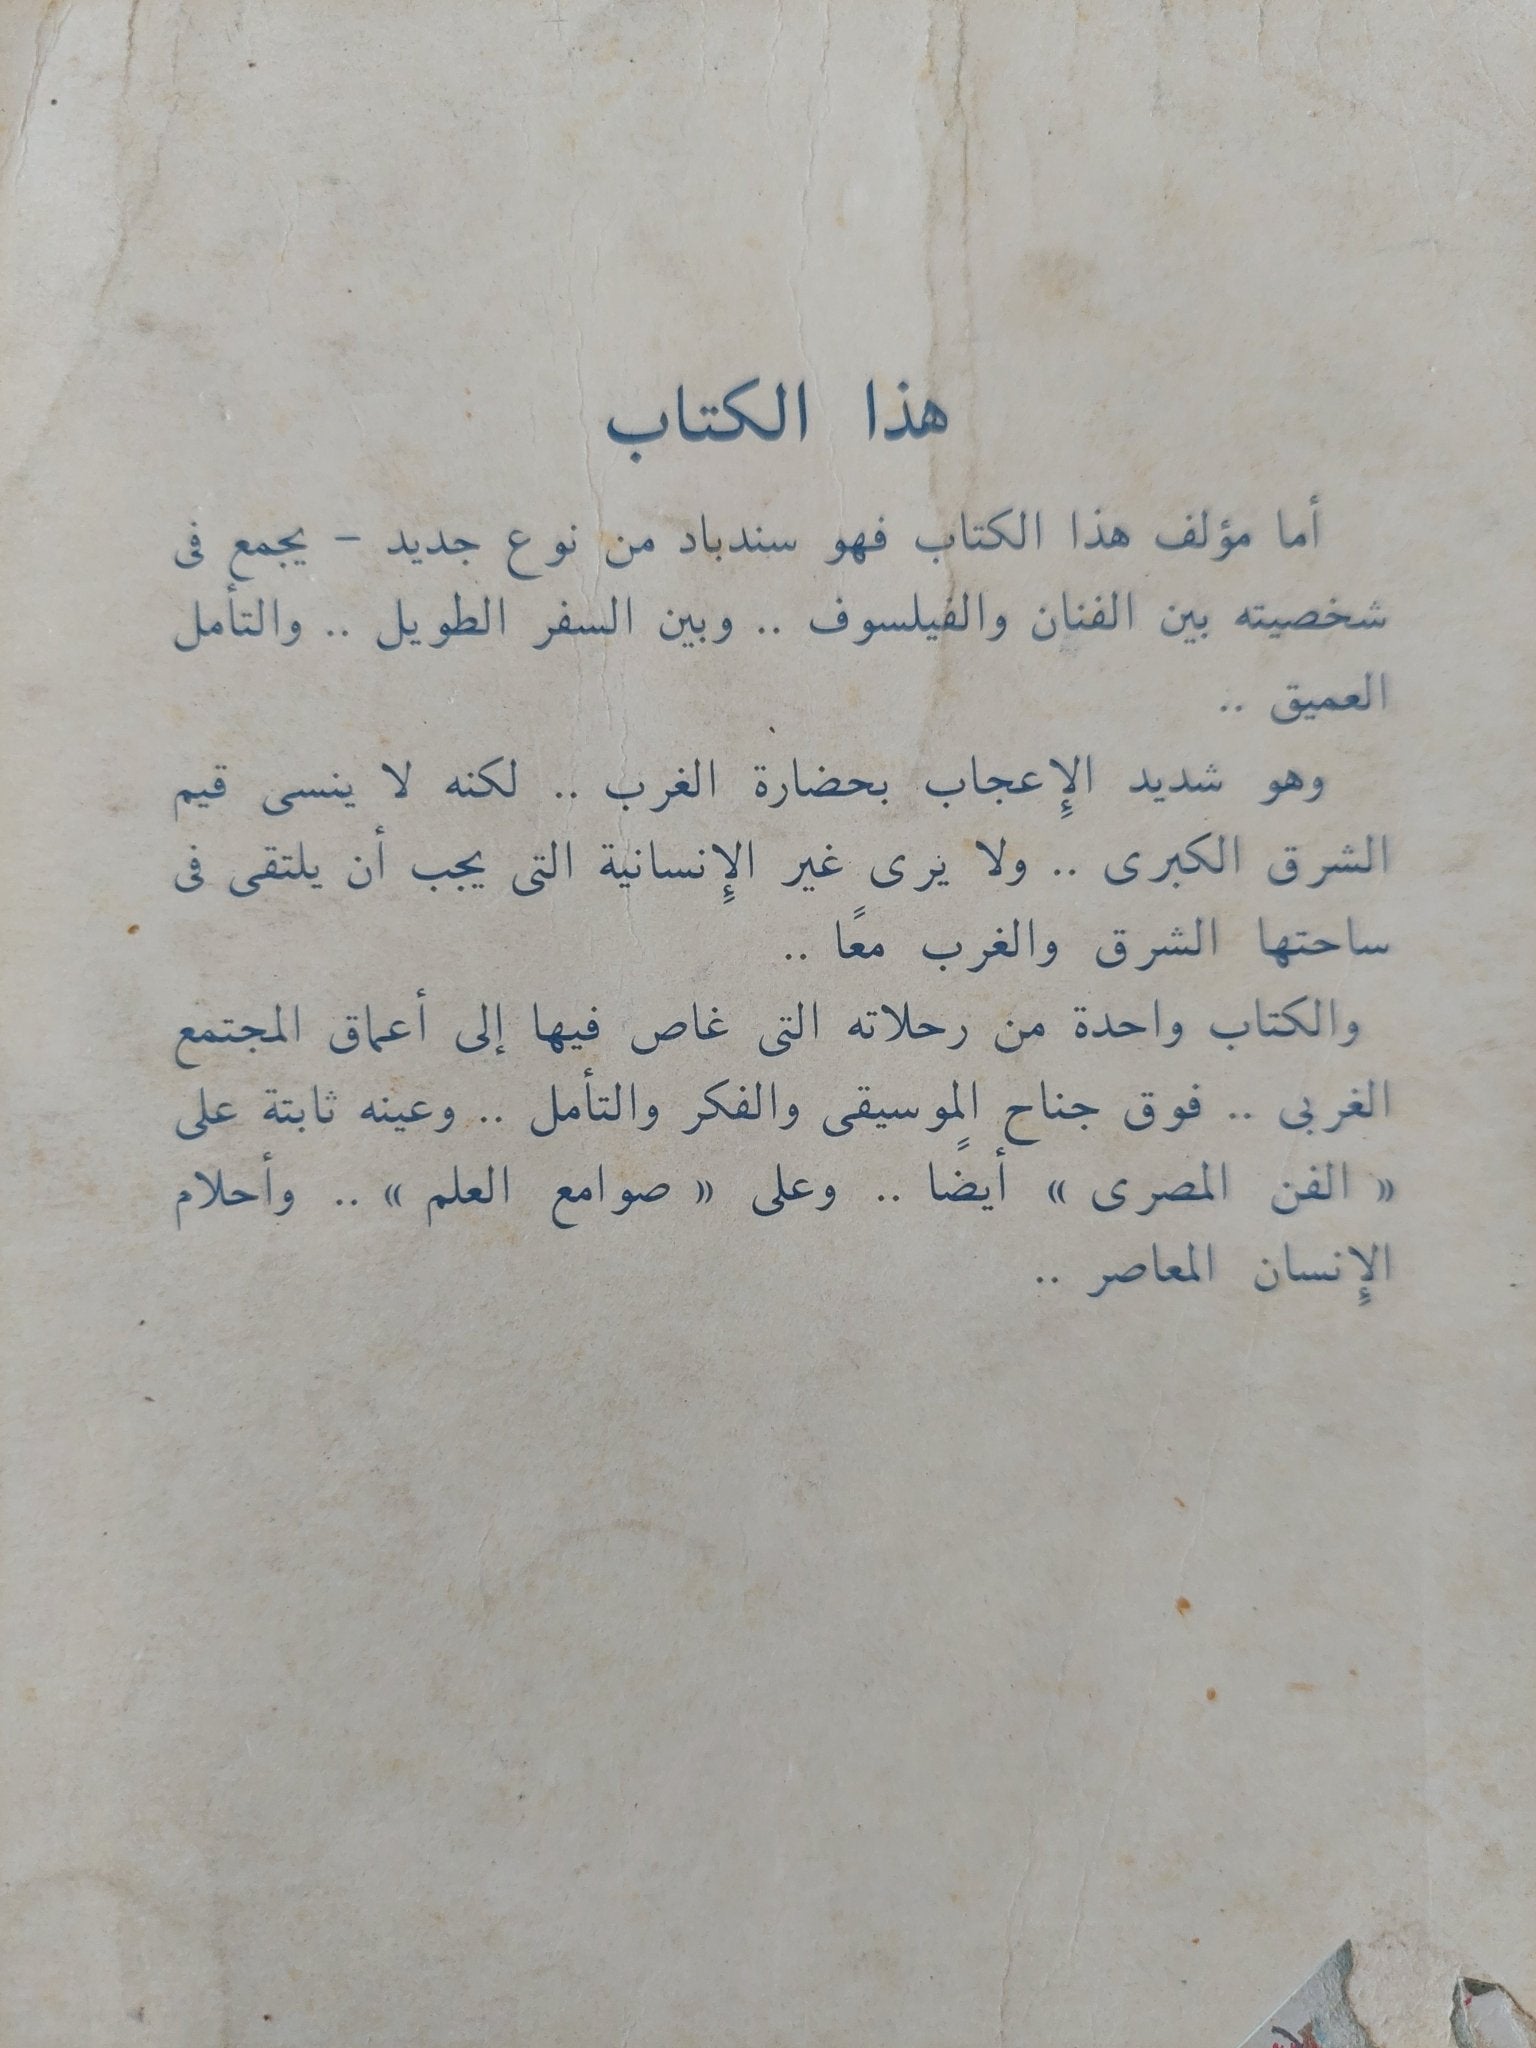 هذا الكتاب
أما مؤلف هذا الكتاب فهو سندباد من نوع جديد – يجمع فى
شخصيته بين الفنان والفيلسوف .. وبين السفر الطويل .. والتأمل
العميق ..
وهو شديد الإعجاب بحضارة الغرب .. لكنه لا ينسى قيم
الشرق الكبرى .. ولا يرى غير الإنسانية التى يجب أن يلتقى فى
ساحتها الشرق والغرب معًا ..
والكتاب واحدة من رحلاته التى غاص فيها إلى أعماق المجتمع
الغربى .. فوق جناح الموسيقى والفكر والتأمل .. وعينه ثابتة على
« الفن المصرى » أيضًا .. وعلى « صوامع العلم » .. وأحلام
الإنسان المعاصر ..